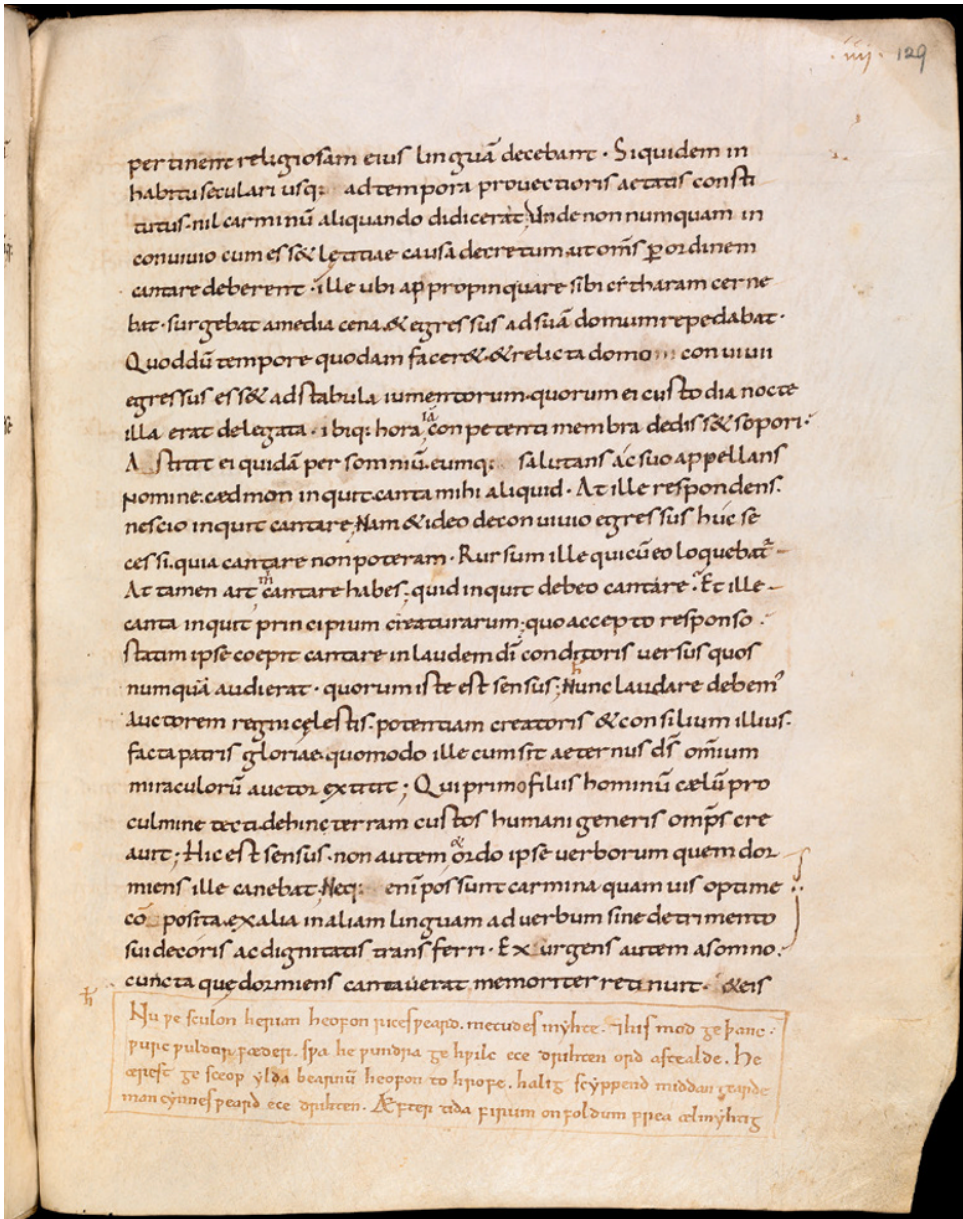 ·iiij· 129
pertinent religiosam eius linguā decebant · Siquidem in
habitu seculari usq; ad tempora prouectioris aetatis consti
tutus · nil carminū aliquando didicerat; Unde non numquam in
conuiuio cum ess& lętitiae causa decretum · ut om̄s ꝑ ordinem
cantare deberent · ille ubi appropinquare sibi citharam cerne
bat · surgebat a media cena · & egressus ad suā domum repedabat ·
Quod dū tempore quodam facer& · & relicta domo conuiuii
egressus ess& ad stabula iumentorum · quorum ei custodia nocte
illa erat delegata · ibiq; hora conpetenti membra dediss& sopori ·
Astitit ei quidā per somniū · eumq; salutans ac suo appellans
nomine · cædmon inquit · canta mihi aliquid · At ille respondens ·
nescio inquit cantare; Nam & ideo de conuiuio egressus hūc se
cessi · quia cantare non poteram · Rursum ille qui cū eo loquebat̄
At tamen ait m̄ cantare habes; quid inquit debeo cantare · Et ille
canta inquit principium creaturarum; quo accepto responso ·
statim ipse coepit cantare in laudem dī conditoris uersus quos
numquā audierat · quorum iste est sensus; Nunc laudare debem᾿
auctorem regni cęlestis · potentiam creatoris & consilium illius ·
facta patris gloriae · quomodo ille cum sit aeternus d̄s om̄ium
miraculorū auctor extitit; Qui primo filiis hominū cælū pro
culmine tecti · dehinc terram custos humani generis omp̄s cre
auit; Hic est sensus · non autem ordo ipse uerborum quem dor
miens ille canebat · Neq; enī possunt carmina quamuis optime
cōposita · ex alia in aliam linguam ad uerbum sine detrimento
sui decoris ac dignitatis transferri · Exurgens autem a somno ·
cuncta quę dormiens cantauerat memoriter retinuit · & eis
Nu ƿe sculon herian heofon rices ƿeard · metudes myhte · ⁊ his mod ge þanc ·
ƿurc ƿuldor fæder · sƿa he ƿundra ge hƿilc ece drihten ord astealde · He
ærest ge sceop ylda bearnū heofon to hrofe · halig scyppend middan gearde
man cynnes ƿeard ece drihten · Æfter tida firum on foldum frea ælmyhtig